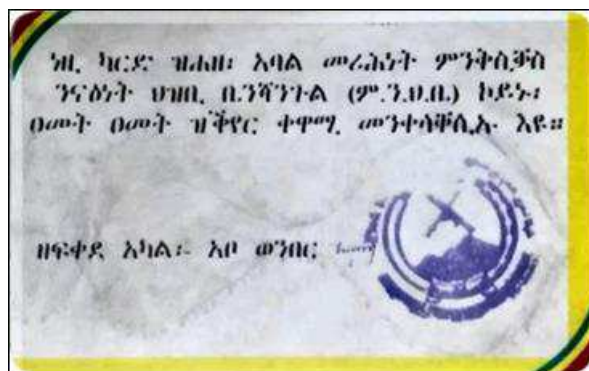 ነዚ ካርድ ዝሐዘ፡ አባል መሪሕነት ምንቅስቓስ
ንናፅነት ህዝቢ ቤንሻንጉል (ም.ን.ህ.ቤ.) ኮይኑ፡
ዐመት ዐመት ዝቕየር ቀዋሚ መንቀሳቐሲኡ እዩ።
ዘፍቀደ አካል፡- አቦ ወንበር